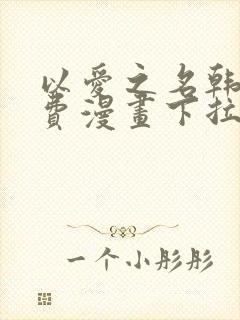 以爱之名韩
费漫画下拉
一个小彤彤